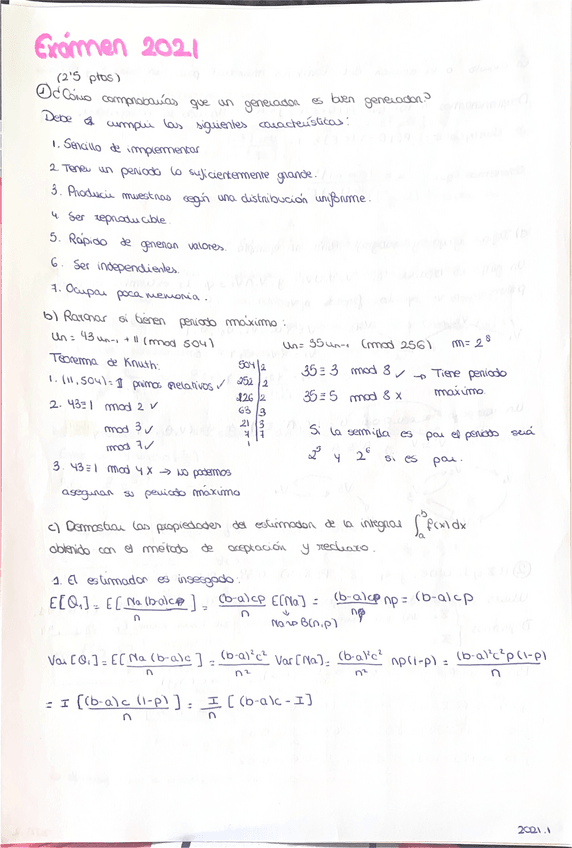 Exámen 2021
(2'5 ptos)
① ¿Cómo comprobarías que un generador es buen generador?
Debe cumplir las siguientes características:
1. Sencillo de implementar
2. Tener un periodo lo suficientemente grande.
3. Producir muestras según una distribución uniforme.
4. Ser reproducible.
5. Rápido de generan valores.
6. Ser independientes.
7. Ocupar poca memoria.
b) Razonar si tienen periodo máximo:
Un = 43 un-1 + 11 (mod 504)
Un = 35 un-1 (mod 256) m = 2⁸
Teorema de Knuth.
1. (11, 504) = 1 primos relativos ✓
2. 43 ≡ 1 mod 2 ✓
mod 3 ✓
mod 7 ✓
3. 43 ≡ 1 mod 4 x → no podemos
asegurar su periodo máximo
504 | 2
252 | 2
126 | 2
63 | 3
21 | 3
7 | 7
1
35 ≡ 3 mod 8 ✓ → Tiene periodo
máximo.
35 ≡ 5 mod 8 x
Si la semilla es par el periodo será
2⁵ y 2⁶ si es par.
c) Demostrar las propiedades del estimador de la integral ∫ₐᵇ f(x) dx
obtenido con el método de aceptación y rechazo.
1. El estimador es insesgado:
E[Q₁] = E[Na (b-a)c / n] = (b-a)cp / n E[Na] = (b-a)cp / n np = (b-a)cp
Na ~> B(n,p)
Var[Q₁] = E[Na (b-a)c / n] = (b-a)²c² / n² Var[Na] = (b-a)²c² / n² np(1-p) = (b-a)²c²p(1-p) / n
= I [(b-a)c (1-p) / n] = I / n [(b-a)c - I]
2021.1